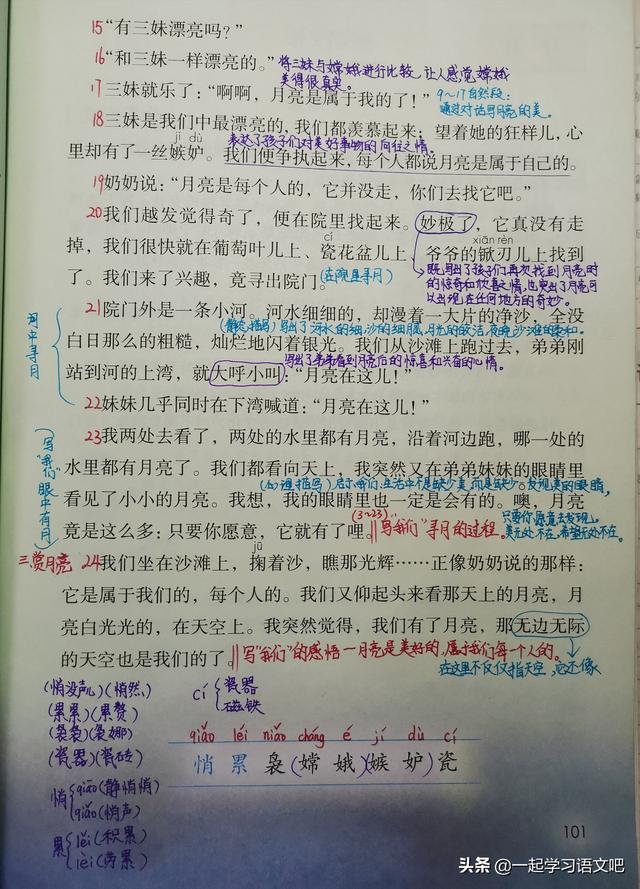 15“有三妹漂亮吗？”
16“和三妹一样漂亮的。”
将三妹与嫦娥进行比较，让人感觉嫦娥
美得很真实。
17三妹就乐了：“啊啊，月亮是属于我的了！”
9～17自然段：
通过对话写月亮的美。
18三妹是我们中最漂亮的，我们都羡慕起来；望着她的狂样儿，心
jí dù
表达了孩子们对美好事物的向往之情。
里却有了一丝嫉妒。我们便争执起来，每个人都说月亮是属于自己的。
19奶奶说：“月亮是每个人的，它并没走，你们去找它吧。”
20我们越发觉得奇了，便在院里找起来。妙极了，它真没有走
cí
xiān rèn
掉，我们很快就在葡萄叶儿上、瓷花盆儿上、爷爷的锨刃儿上找到
既写出了孩子们再次找到月亮时
的惊奇和欣喜之情，也突出了月亮可
以出现在任何地方的奇妙。
了。我们来了兴趣，竟寻出院门。
(在院里寻月)
21院门外是一条小河。河水细细的，却漫着一大片的净沙，全没
(静态描写)写出了河水的细，沙的细腻，月光的皎洁，夜晚沙滩的柔和。
白日那么的粗糙，灿烂地闪着银光。我们从沙滩上跑过去，弟弟刚
写出了弟弟看到月亮后的惊喜和兴奋的心情。
站到河的上湾，就大呼小叫：“月亮在这儿！”
河中寻月
22妹妹几乎同时在下湾喊道：“月亮在这儿！”
23我两处去看了，两处的水里都有月亮，沿着河边跑，哪一处的
水里都有月亮了。我们都看向天上，我突然又在弟弟妹妹的眼睛里
看见了小小的月亮。我想，我的眼睛里也一定是会有的。噢，月亮
写“我们”眼中有月
竟是这么多：只要你愿意，它就有了哩。
(3～23)
‖写“我们”寻月的过程。
只要你愿意去发现，
美无处不在，希望无处不在。
三.赏月亮
jū
24我们坐在沙滩上，掬着沙，瞧那光辉……正像奶奶说的那样：
它是属于我们的，每个人的。我们又仰起头来看那天上的月亮，月
亮白光光的，在天空上。我突然觉得，我们有了月亮，那无边无际
的天空也是我们的了。
‖写“我们”的感悟—月亮是美好的，属于我们每一个人的。
在这里不仅仅指天空，它还像
(悄没声儿)(悄然)
(累累)(累赘)
(袅袅)(袅娜)
(瓷器)(瓷砖)
cí{瓷器
磁铁
qiǎo léi niǎo cháng é jí dù cí
悄 累 袅(嫦 娥)(嫉 妒)瓷
悄{qiāo(静悄悄)
qiǎo(悄声)
累{lěi(积累)
lèi(劳累)
101
头条 @一起学习语文吧